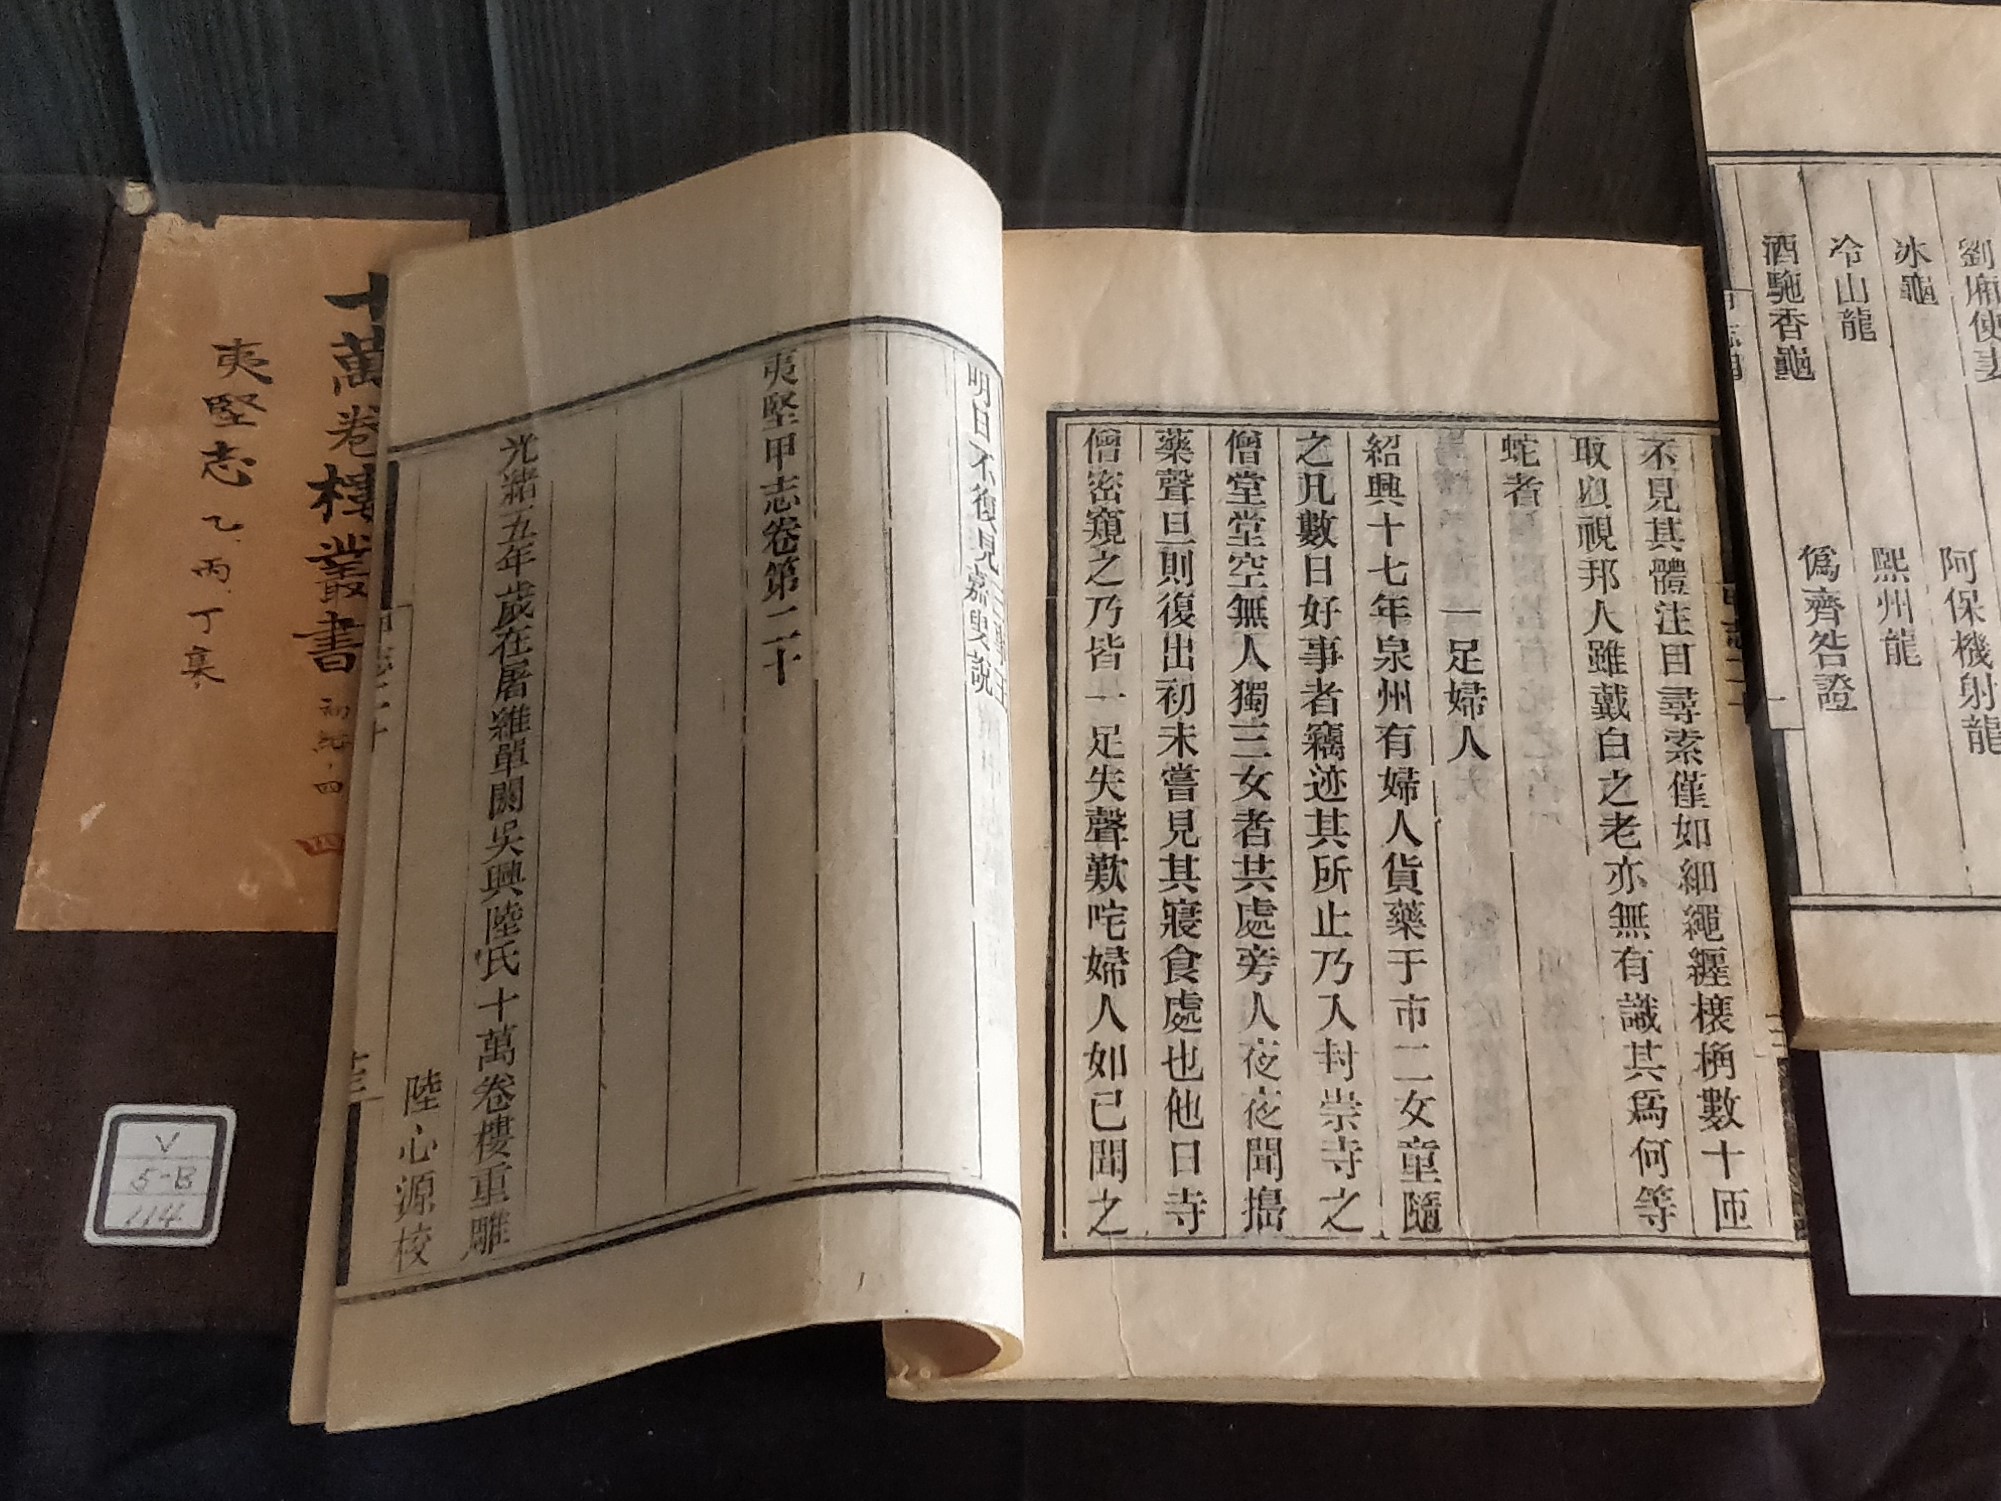 劉廂使妻
阿保機射龍
冰龜
熙州龍
冷山龍
偽齊咎證
酒駞香龜
不見其體注目尋索僅如細繩纏榱桷數十匝
取以視邦人雖戴白之老亦無有識其爲何等
蛇者
一足婦人
紹興十七年泉州有婦人貨藥于市二女童隨
之凡數日好事者竊迹其所止乃入封崇寺之
僧堂堂空無人獨三女者共處旁人夜夜聞搗
藥聲旦則復出初未嘗見其寢食處也他日寺
僧密窺之乃皆一足失聲歎咤婦人如已聞之
明日不復見
嘉叟說
夷堅甲志卷第二十
光緒五年歲在屠維單閼吳興陸氏十萬卷樓重雕
陸心源校
甲志二十
十三
十萬卷樓叢書
初
四
四
夷堅志
乙丙丁集
V
5-B
114